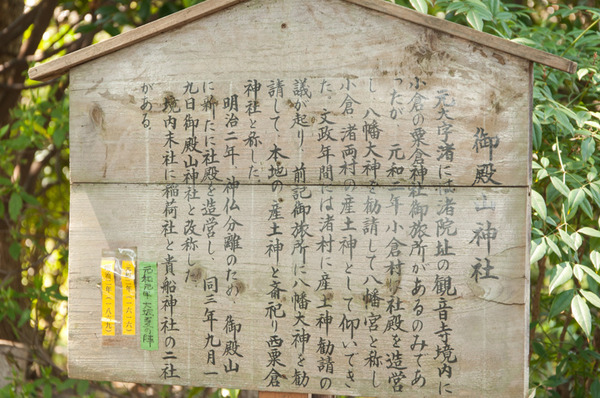 御殿山神社
元大字渚には渚院址の観音寺境内に
小倉の粟倉神社御旅所があるのみであ
ったが、元和二年小倉村が社殿を造営
し、八幡大神を勧請して八幡宮と称し
小倉、渚両村の産土神として仰いできた
た。文政年間には渚村に産土神勧請の
議が起り、前記御旅所に八幡大神を勧
請して、本地の産土神と斎祀り西粟倉
神社と称した。
明治二年、神仏分離のため、御殿山
に新たに社殿を造営し、同三年九月一
九日御殿山神社と改称した。
境内末社に稲荷社と貴船神社の二社
がある。
元和元年 大坂夏の陣
元和二年(一六一六)